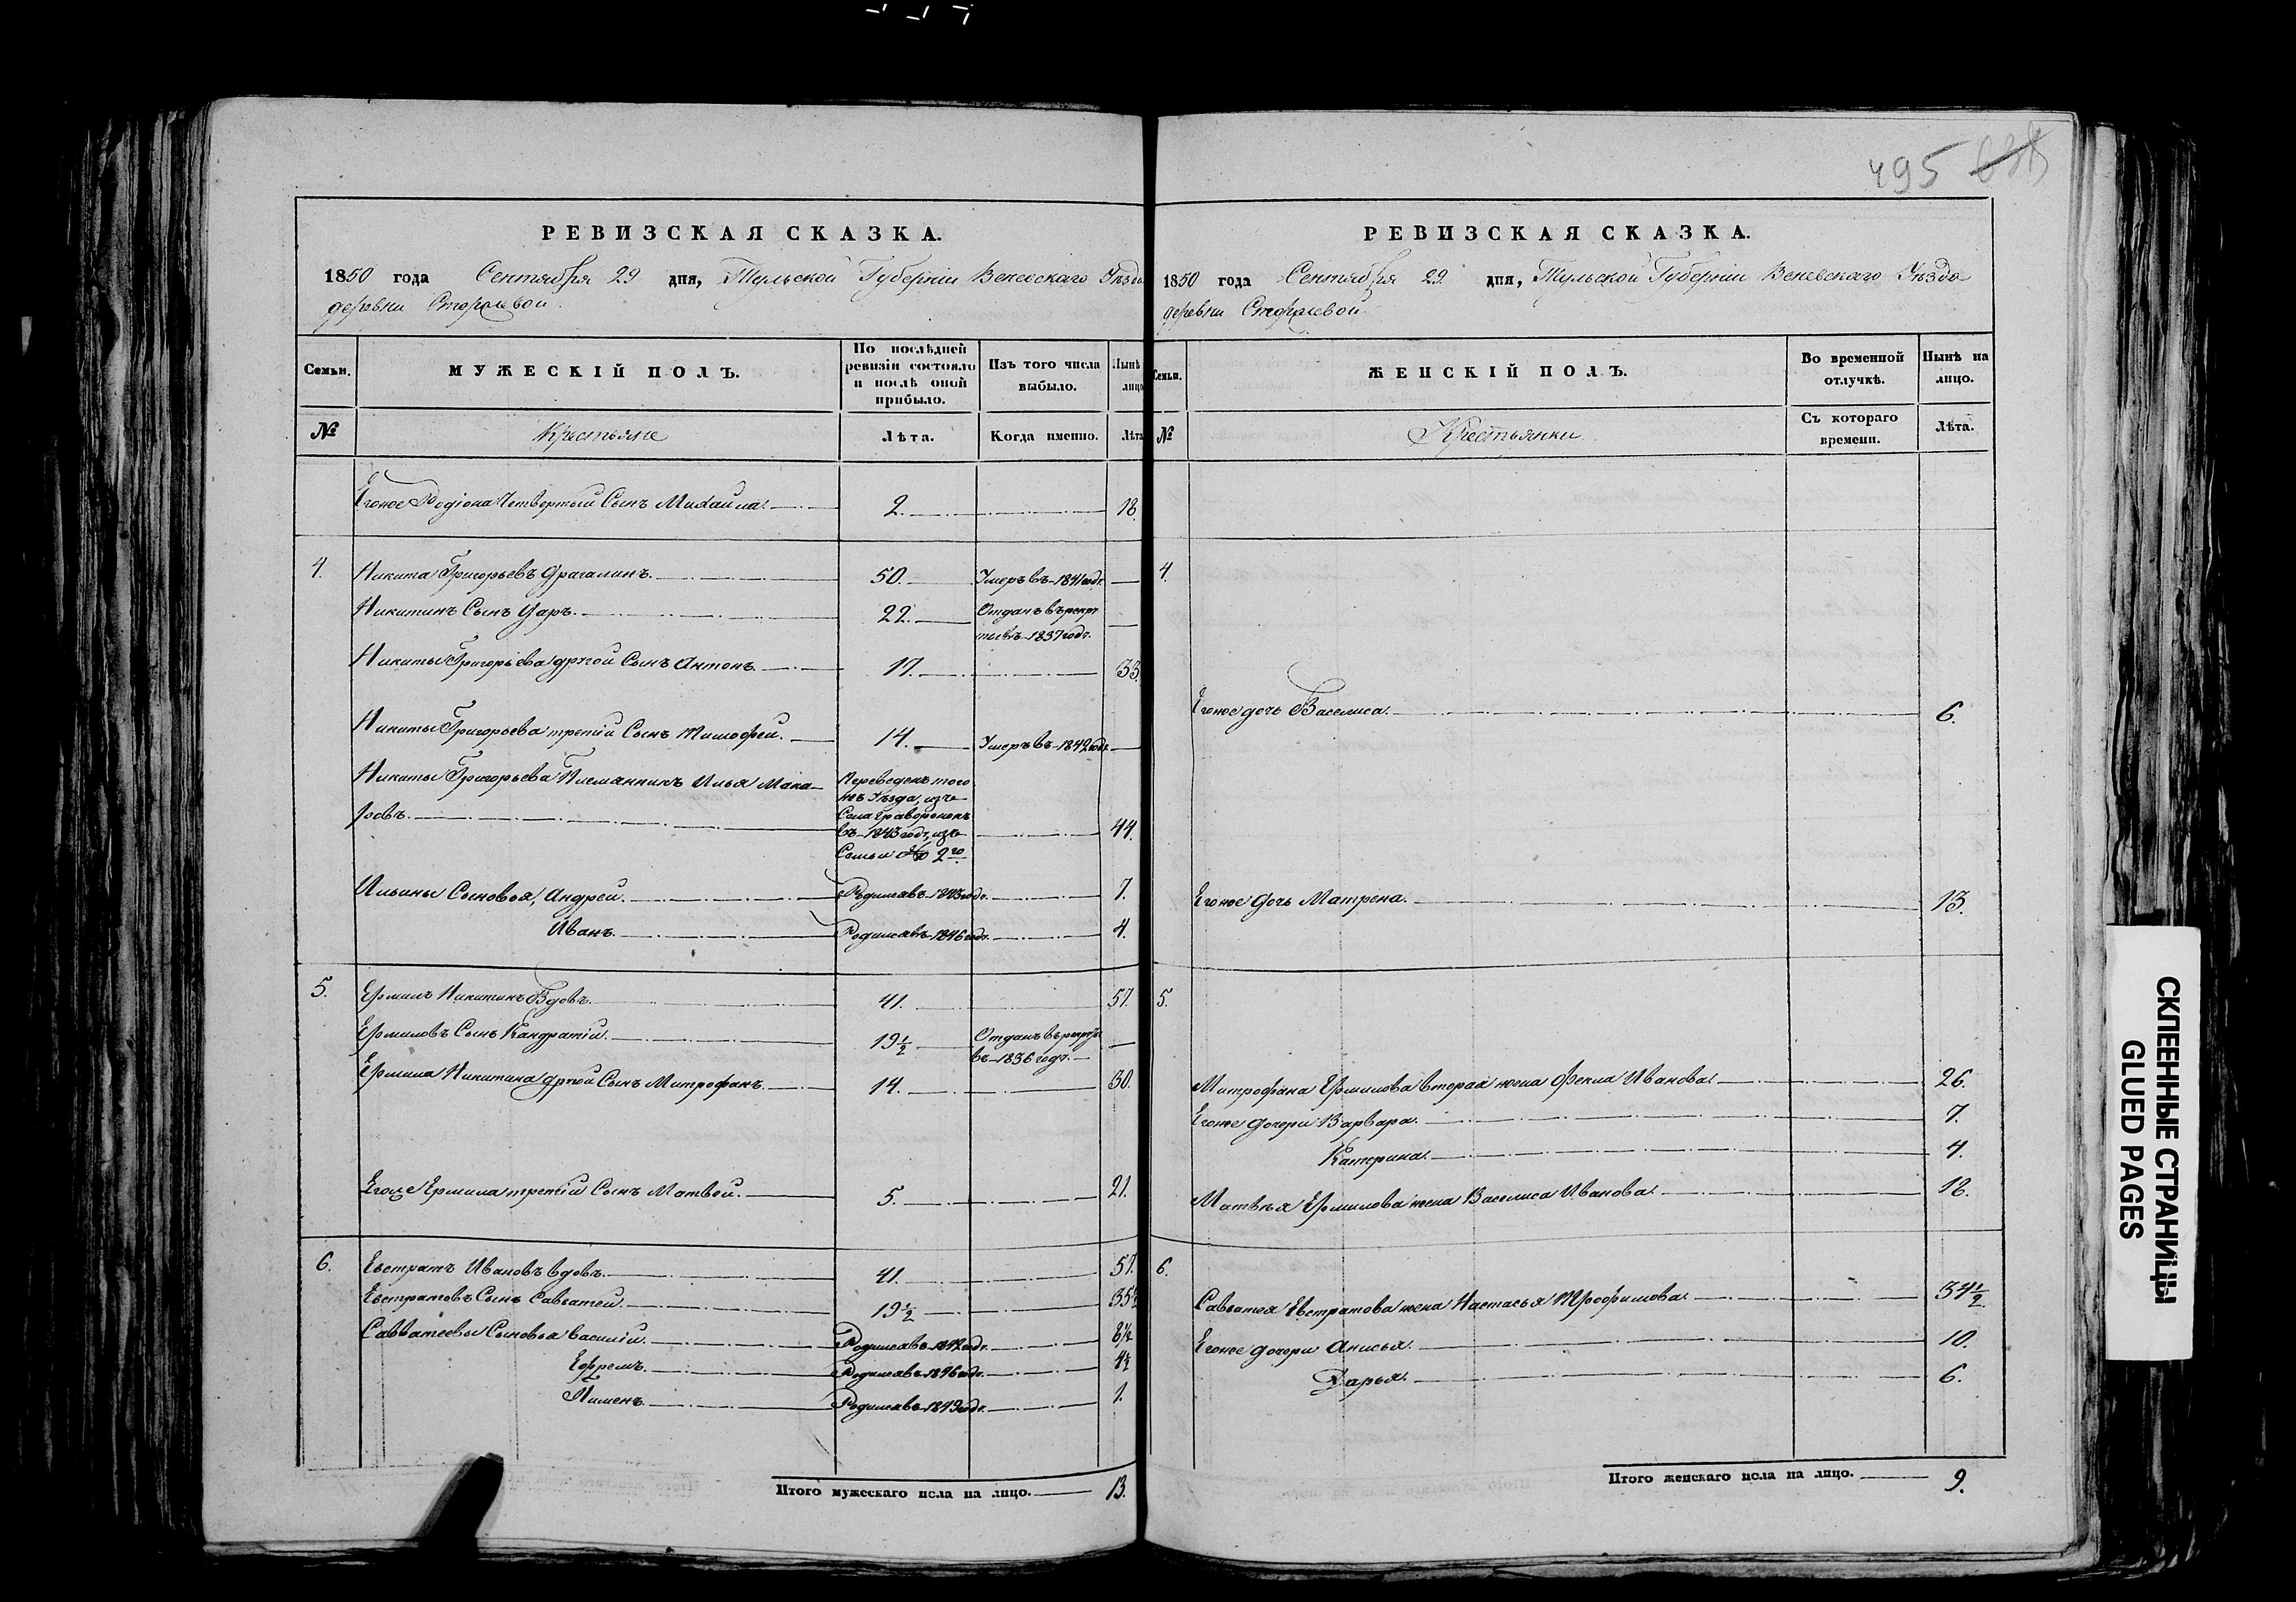 РЕВИЗСКАЯ СКАЗКА.
1850 года Сентября 29 дня, Тульской Губерніи Веневскаго Уѣзда
деревни
Семьи. МУЖЕСКІЙ ПОЛЪ. По послѣдней ревизіи состояло и послѣ оной прибыло. Изъ того числа выбыло. Нынѣ лицо
№ Крестьяне Лѣта. Когда именно. Лѣта
Егоже Родіона Четвертый Сынъ Михайла. 2. 18.
4. Никита Григорьевъ 50. Умеръ въ 1841 годѣ.
Никитинъ Сынъ Уаръ. 22. Отданъ въ рекру
ты въ 1837 годѣ.
Никиты Григорьева другой Сынъ Антонъ. 17. 33.
Никиты Григорьева третій Сынъ Тимофей. 14. Умеръ въ 1842 годѣ.
Никиты Григорьева Племянникъ Илья Мака-
ровъ. 44.
Переведенъ того
жъ Уѣзда, изъ
Села
въ 1843 годѣ, изъ
Семьи № 2го
Ильины Сыновья, Андрей. Родился въ 1843 годѣ. 7.
Иванъ. Родился въ 1846 годѣ. 4.
5. Ермилъ Никитинъ Вдовъ. 41. 57.
Ермиловъ Сынъ Кандратій. 19½ Отданъ въ рекруты
въ 1836 годѣ.
Ермила Никитина другой Сынъ Митрофанъ. 14. 30.
Егоже Ермила третій Сынъ Матвей. 5. 21.
6. Евстратъ Ивановъ вдовъ. 41. 57.
Евстратовъ Сынъ Савватей. 19½ 35½
Савватеевы Сыновья Василій. Родился въ 1842 годѣ. 8½
Ефремъ. Родился въ 1846 годѣ. 4½
Пименъ. Родился въ 1849 годѣ. 1.
Итого мужескаго пола на лицо. 13.
495
РЕВИЗСКАЯ СКАЗКА.
1850 года Сентября 29 дня, Тульской Губерніи Веневскаго Уѣзда
деревни
Семьи. ЖЕНСКІЙ ПОЛЪ. Во временной отлучкѣ. Нынѣ на лицо.
№ Крестьянки Съ котораго времени. Лѣта.
4.
Егоже дочь Василиса. 6.
Егоже дочь Матрена. 13.
5.
Митрофана Ермилова вторая жена Фекла Иванова. 26.
Егоже дочери Варвара. 7.
Катерина. 4.
Матвѣя Ермилова жена Василиса Иванова. 18.
6.
Савватея Евстратова жена Настасья Трофимова. 34½
Егоже дочери Анисья. 10.
Дарья. 6.
Итого женскаго пола на лицо. 9.
СКЛЕЕННЫЕ СТРАНИЦЫ
GLUED PAGES